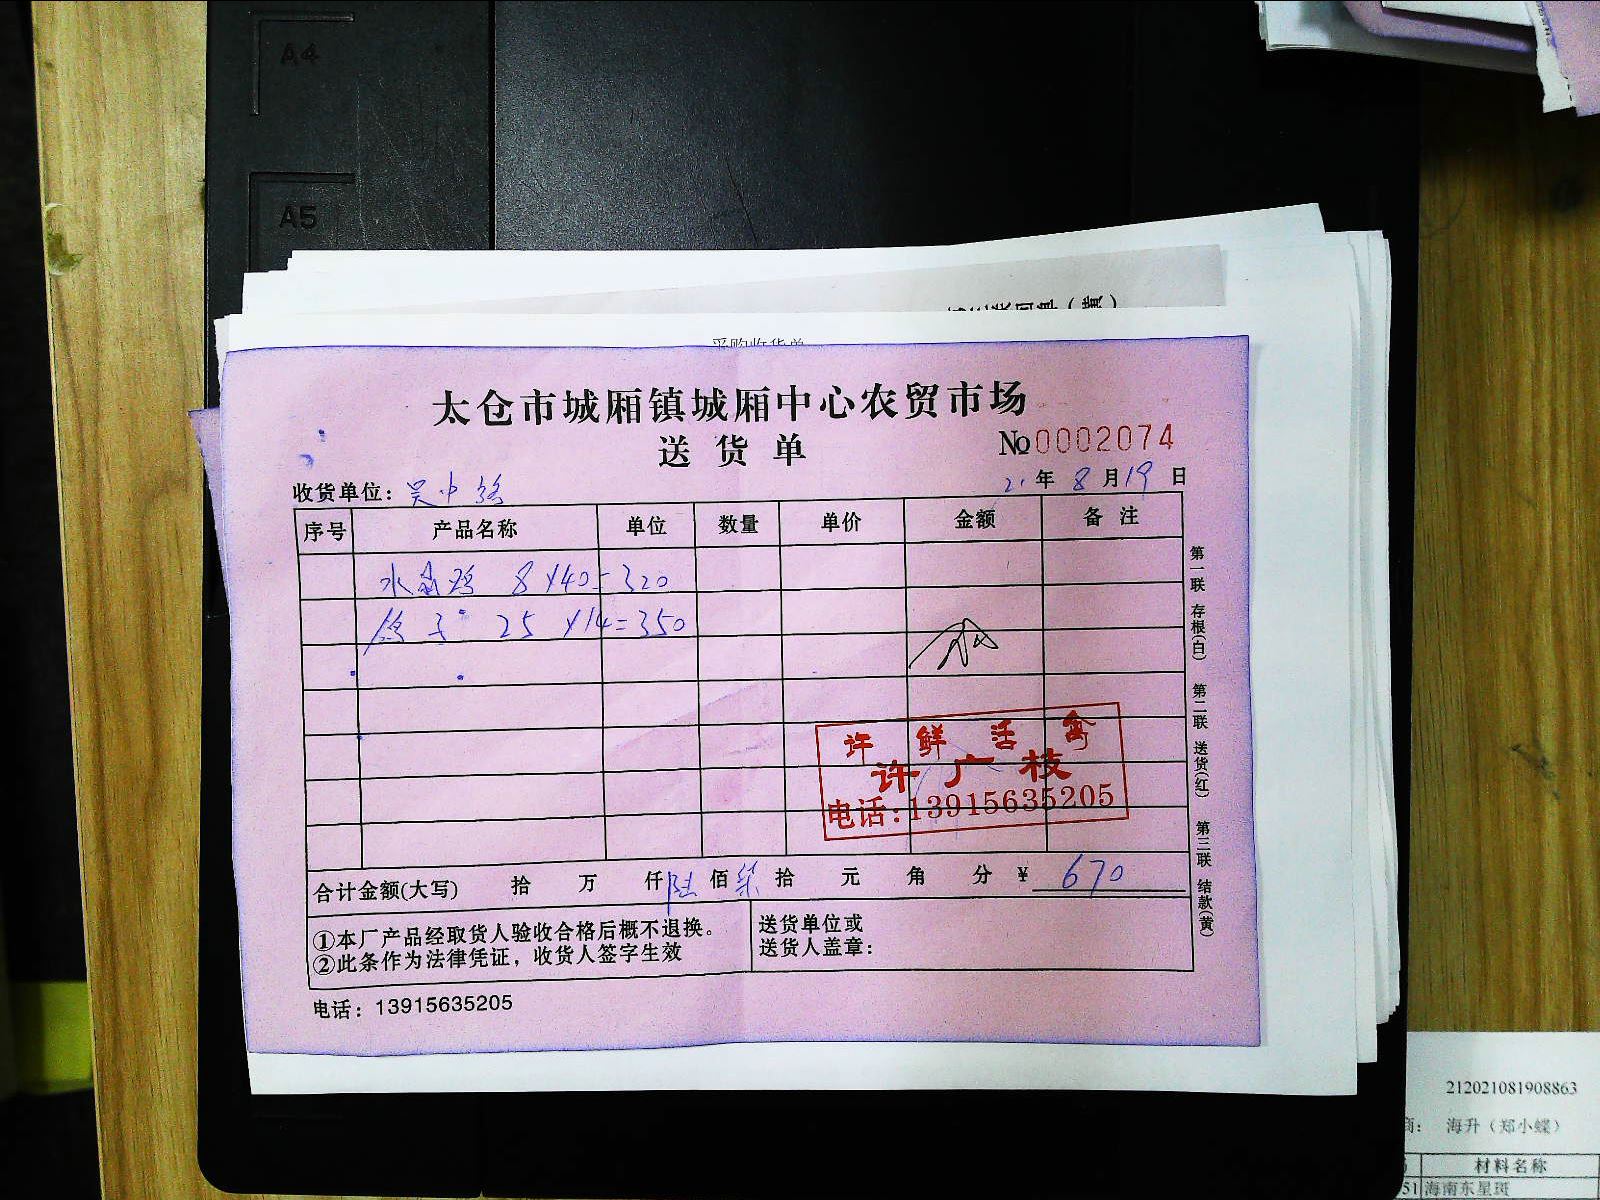 A4
A5
太仓市城厢镇城厢中心农贸市场
送货单
No 0002074
收货单位：吴中路
21年8月19日
序号 产品名称 单位 数量 单价 金额 备注
水晶鸡 8×40=320
鸽子 25×14=350
许鲜活禽
许广枝
电话：13915635205
合计金额(大写) 拾 万 仟陆佰柒拾 元 角 分 ￥670
①本厂产品经取货人验收合格后概不退换。
②此条作为法律凭证，收货人签字生效
送货单位或
送货人盖章：
电话：13915635205
第一联 存根(白) 第二联 送货(红) 第三联 结款(黄)
212021081908863
商： 海升（郑小蝶）
材料名称
51 海南东星斑